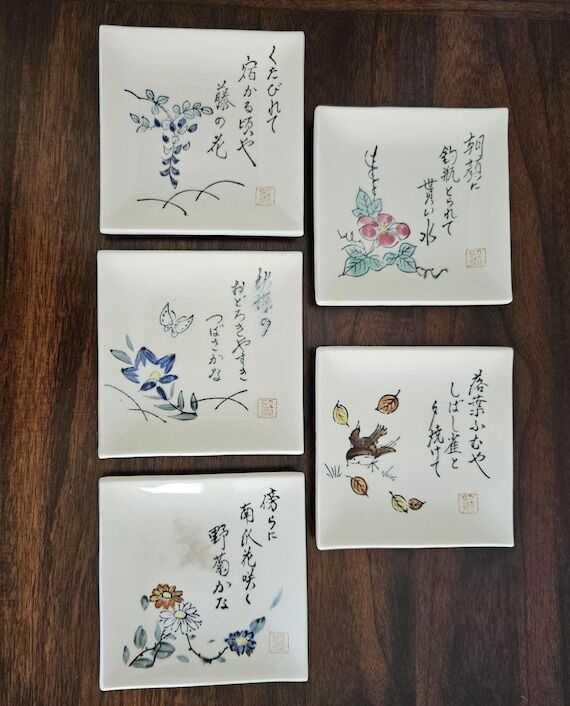 くたびれて
宿かる頃や
藤の花
朝顔に
釣瓶とられて
貰い水
秋蝶の
おどろきやすき
つばさかな
落葉ふむや
しばし雀と
夕焼けて
傍らに
南瓜花咲く
野菊かな